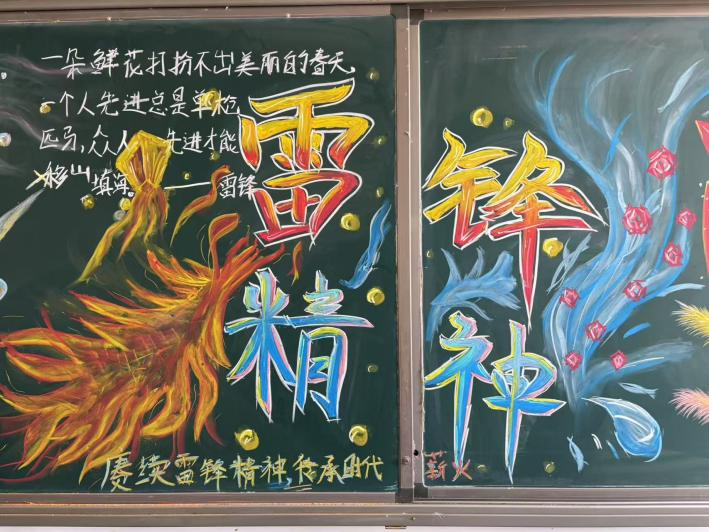 一朵鲜花打扮不出美丽的春天,
一个人先进总是单枪
匹马,众人先进才能
移山填海 ——雷锋
雷锋
精神
赓续雷锋精神,传承时代
薪火